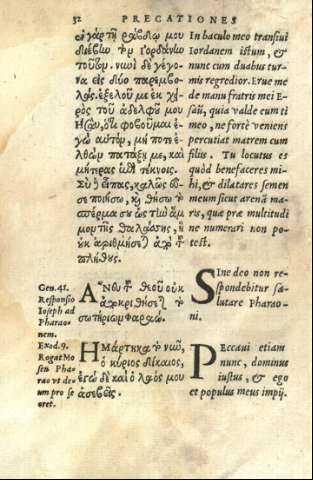 52 PRECATIONES
ἐν γὰρ τῇ ῥάβδῳ μου
διέβην τὸν ἰορδάνην
τοῦτον. νυνὶ δὲ γέγονα
εἰς δύο παρεμβολάς.
ἐξελοῦ με ἐκ χειρὸς
τοῦ ἀδελφοῦ μου
ὅτι φοβοῦμαι ἐγὼ
αὐτὸν, μή ποτε ἐλθὼν
πατάξῃ με, καὶ
μητέρας
Σὺ
θήσω
σπέρμα σου ὡς τὴν ἄμμον
τῆς θαλάσσης, ἣ
οὐκ ἀριθμήσε
πλήθους.
In baculo meo transivi
Iordanem istum, &
nunc cum duabus turmis
regredior. Erue me
de manu fratris mei Esaü,
quia valde eum timeo,
ne forte veniens
percutiat matrem cum
filiis. Tu locutus es
quòd benefaceres mihi,
& dilatares semen
meum sicut arenã maris,
quæ præ multitudine
numerari non potest.
Gen. 41.
Responsio
Ioseph ad
Pharaonem.
ΑΝευ τοῦ θεοῦ οὐκ
ἀποκριθήσεται τὸ
σωτήριον φαραώ.
SIne deo non respondebitur
salutare Pharaoni.
Exod. 9.
Rogat Mosen
Pharao ut deum
pro se
oret.
ΗΜάρτηκα τὸ νῦν,
ὁ κύριος δίκαιος,
ἐγὼ δὲ καὶ ὁ λαός μου
ἀσεβεῖς.
PEccaui etiam
nunc, dominus
iustus, & ego
et populus meus impij.